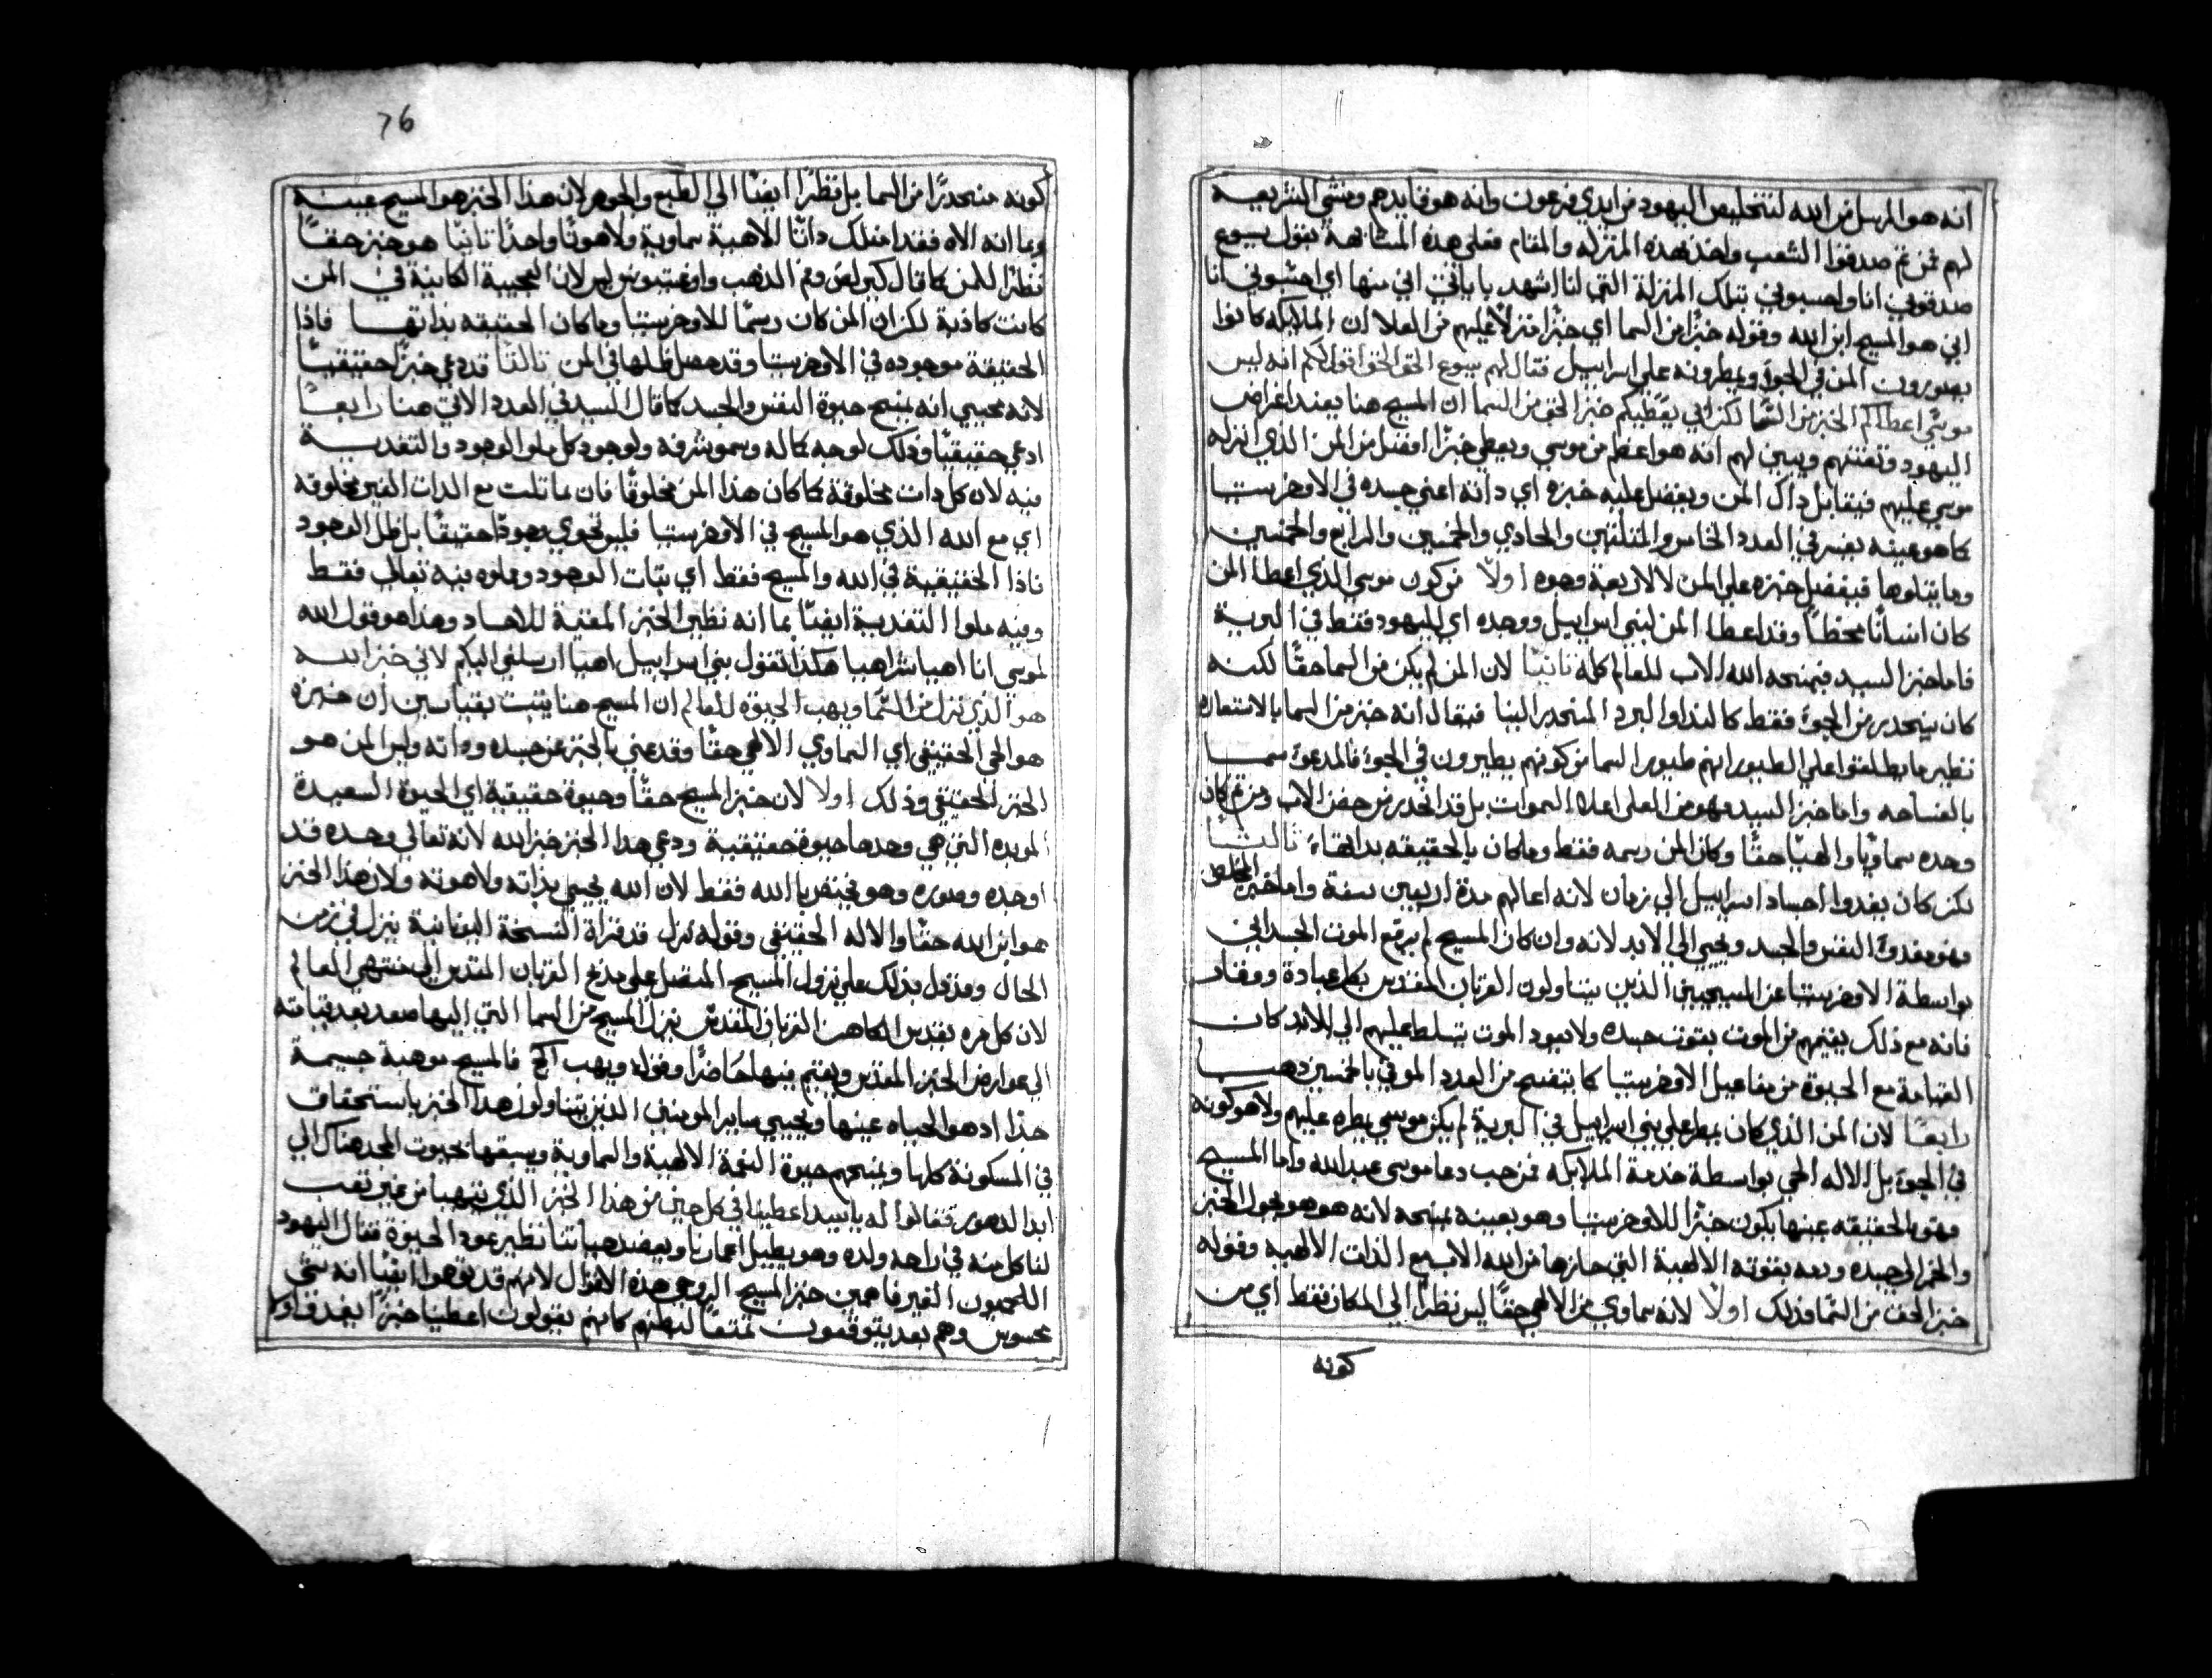 انه هو المرسل من الله لتخليص اليهود من ايدي فرعون وانه هو قايدهم ومنشي الشريعه
لهم فمن ثم صدقوا الشعب واخذ هذه المنزله والمقام فعلي هذه المشابهة يقول يسوع
صدقوني انا واحسبوني بتلك المنزلة التي لنا اشهد باياتي اني منها اي احسبوني انا
اني هو المسيح ابن الله وقوله خبزًا من السما اي خبزًا منزلًا عليهم من العلا ان الملايكه كانوا
يصورون المن في الجوء ويمطرونه علي اسراييل فقال لهم يسوع الحق الحق اقول لكم انه ليس
موسي اعطاكم الخبز من السما لكن ابي يعطيكم خبز الحق من السما ان المسيح هنا يفند اغراض
اليهود وتعنتهم ويبين لهم انه هو اعظم من موسي ويعطي خبزًا افضل من المن الذي انزله
موسي عليهم فيقابل داك المن ويفضل عليه خبزه اي داته اعني جسده في الاوخرستيا
كما هو عينه يفسر في العدد الخامس والثلثين والحادي والخمسين والرابع والخمسين
وما يتلوها فيفضل خبزه علي المن لاربعة وجوه اولًا من كون موسي الذي اعطا المن
كان انسانًا محضًا وقد اعطا المن لبني اسراييل ووحده اي لليهود فقط في البرية
فاما خبز السيد فيمنحه الله الاب للعالم كله ثانيًا لان المن لم يكن من السما حقًا لكنه
كان ينحدر من الجوء فقط كالندا والبرد المنحدر الينا فيقال انه خبز من السما بالاستعاره
نظير ما يطلقوا علي الطيور انهم طيور السما من كونهم يطيرون في الجوء فالمدعوء سمـا
بالفساحه واما خبز السيد فهو من العلي اعلا السموات بل قد انحدر من حضن الاب ومن ثم كان
وحده سماويًا والهيًا حقًا وكان المن رسمه فقط وماكان بالحقيقه بداتها ثالثـًا
لكن كان يغدوا اجساد اسراييل الي زمان لانه اعالهم مدة اربعين سنة واما خبز المخلص
فهو يغدوء النفس والجسد ويحيي الي الابد لانه وان كان المسيح لم يرفع الموت الجسداني
بواسطة الاوخرستيا عن المسيحيين الذين يتناولون القربان المقدس بكل عبادة ووقار
فانه مع ذلك يقيمهم من الموت بقوت جسده ولا يعود الموت يتسلط عليهم الي الابد كان
القيامة مع الحيوة من مفاعيل الاوخرستيا كما يتضح من العدد الموفي بالخمسين
رابعًا لان المن الذي كان يمطر علي بني اسراييل في البرية لم يكن موسي يمطره عليهم ولا هو كونه
في الجوء بل الاله الحي بواسطة خدمة الملايكه فمن حب دعا موسي عبد الله واما المسيح
فهو بالحقيقه عينها يكون خبزًا للاوخرستيا وهو بعينه يمنحه لانه هو هو يحول الخبز
والخمر الي جسده ودمه بقوته الالهية التي حازها من الله الاب مع الذات الالهيه وقوله
خبز الحق من السما وذلك اولًا لانه سماوي من الالهي حقًا ليس نظرًا الي المكان فقط اي من
كونه
76
كونه منحدرًا من السما بل نظرًا ايضًا الي الطبع والجوهر لان هذا الخبز هو المسيح عينـه
وبما انه الاه فقد امتلك داتًا الاهية سماوية ولاهوتًا واحدًا ثانيًا هو خبز حقـًا
نظرًا للمن كما قال كيرلص وفم الذهب واوغستينوس لان العجيبة الكاينة في المن
كانت كاذبة لكن ان المن كان رسمًا للاوخرستيا وماكان الحقيقه بداتهـا فاذا
الحقيقة موجوده في الاوخرستيا وقد حصل ظلها في المن ثالثًا قد دعي خبزًا حقيقيـًا
لانه محيي انه يمنح حيوة النفس والجسد كما قال السيد في العدد الاتي هنا رابعـًا
ادعي حقيقيًا وذلك لوجه كماله وسمو شرفه ولوجود كل ملو الوجود والتغديـة
فيه لان كل دات مخلوقة كما كان هذا المن مخلوقًا فان تماثلت مع الدات الغير مخلوقه
اي مع الله الذي هو المسيح في الاوخرستيا فليس تحوي وجودًا حقيقًا بل ظل الوجود
فاذا الحقيقية في الله والمسيح فقط اي ثبات الوجود وملوه فيه تعالي فقـط
وفيه ملوا التغدية ايضًا بما انه نظير الخبز المقتية للاجساد وهذا هو قول الله
لموسي انا اهيا شراهيا هكذا تقول بني اسراييل اهيا ارسلني اليكم لاني خبز اللـه
هو الذي نزل من السما ويهب الحيوة للعالم ان المسيح هنا يثبت بقياسين ان خبزه
هو الحي الحقيقي اي السماوي الالهي حقًا وقد عني بالخبز عن جسده وداته وليس المن هو
الخبز الحقيقي وذلك اولًا لان خبز المسيح حقًا وحيوة حقيقية اي الحيوة السعيدة
الموبده التي هي وحدها حيوة حقيقية ودعي هدا الخبز خبز الله لانه تعالي وحده قـد
اوجده وصوره وهو مختص بالله فقط لان الله يحيي بذاته ولاهوته ولان هذا الخبز
هو ابن الله حقًا والاله الحقيقي وقوله نزل قد قراة النسخة اليونانية ينزل في زمن
الحال ومزدول بذلك علي نزول المسيح المتصل علي مذبح القربان المقدس الي منتهي العالم
لان كل مره يقدس الكاهن القربان المقدس ينزل المسيح من السما التي اليها صعد بعد قيامته
الي عوارض الخبز المقدس ويقيم فيها حاضرًا وقوله ويهب الخ فالمسيح موهبة جسيمة
جدًا اد هو الحياه عينها ويحيي ساير المومنين الدين يتناولون هدا الخبز باستحقاق
في المسكونة كلها ويمنحهم حيوة النعمة الالهية والسماوية ويسبقها بحيوت المجد هناك الي
ابد الدهور فقالوا له يا سيد اعطينا في كل حين من هذا الخبز الذي يتهيا من غير تعب
لناكل منه في راحه ولده وهو يطيل اعمارنا ويعضد حياتنا نظير عود الحيوة فقال اليهود
اللحميون الغير فاهمين خبز المسيح الروحي هذه الاقوال لانهم قد توهوا ايضًا انه شي
محسوس وهم بعد يتوقعون تمتعًا لبطنهم كانهم يقولون اعطينا خبزًا يغدي اوكا